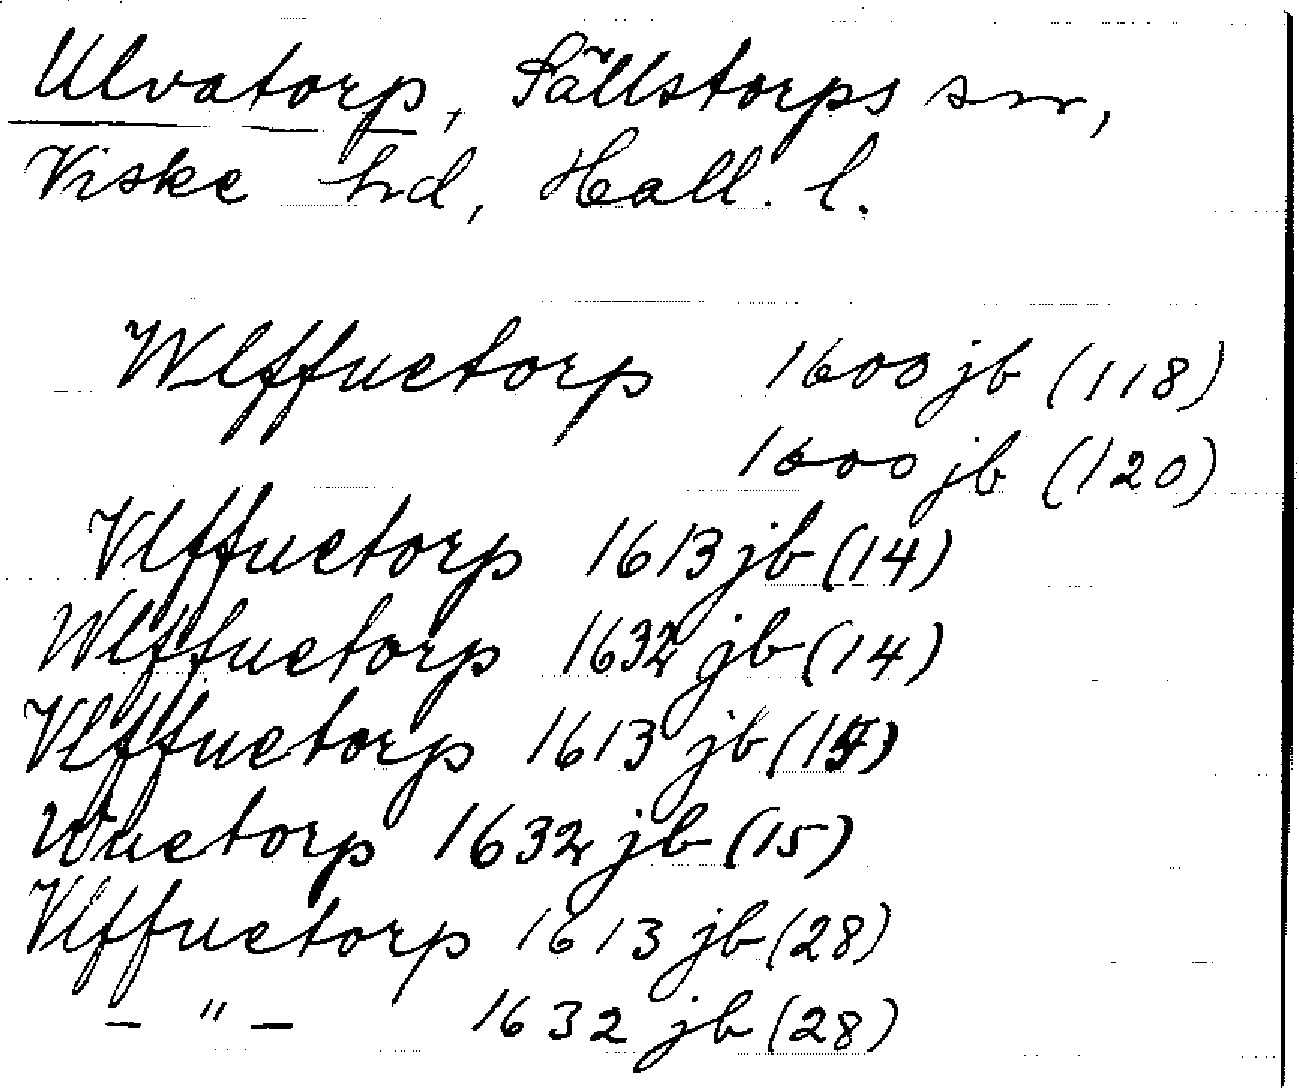 Ulvatorp, Sällstorps sn,
Viske hd, Hall. l.
Wlffuetorp 1600 jb (118)
1600 jb (120)
Vlffuetorp 1613 jb (14)
Wlffuetorp 1632 jb (14)
Vlffuetorp 1613 jb (15)
Wuetorp 1632 jb (15)
Vlffuetorp 1613 jb (28)
– " – 1632 jb (28)